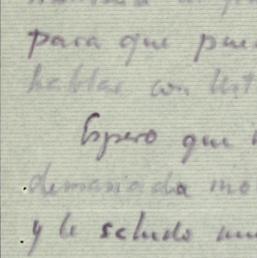 para que pue
hablar con Ust
Espero que
demasiada mo
y le saludo mu